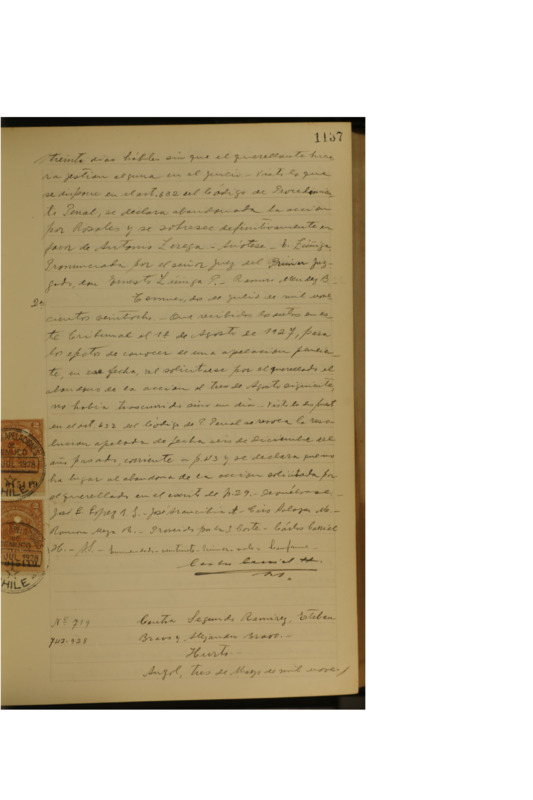 1157
treinta días hábiles sin que el querellante hicie
ra gestion alguna en el juicio. - Visto lo que
se dispone en el art. 632 del Código de Procedimien
to Penal, se declara abandonada la accion
por Rosales y se sobresee definitivamente en
favor de Antonio - Anótese. - E. Zúñiga
Pronunciada por el señor Juez del Primer Juz-
gado, don Ernesto Zúñiga P. - Ramiro Mendez B.
2a Temuco, dos de julio de mil nove
cientos veintiocho. - Que recibidos los autos en es-
te Tribunal el 1º de Agosto de 1927, para
los efectos de conocer de una apelacion pendien-
te, en esa fecha, al solicitarse por el querellado el
abandono de la accion el tres de Agosto siguiente,
no habia trascurrido sino un dia. - Visto lo dispuesto
en el art. 632 del Código de P. Penal se revoca la reso-
lucion apelada de fecha seis de Diciembre del
año pasado, corriente a f. 43 y se declara que no
ha lugar al abandono de la accion solicitada por
el querellado en el escrito de f. 29. - Devuélvase. -
José E. López - Ciro Salazar M. -
Ramon Meza R. - Proveido por la I. Corte. - Cárlos
JUL 1928
CHILE
JUL 1928
CHILE
Nº 919 Contra Segundo Ramirez, Esteban
942-928 Bravo y Alejandro Bravo. -
Hurto
Angol, tres de Mayo de mil nove